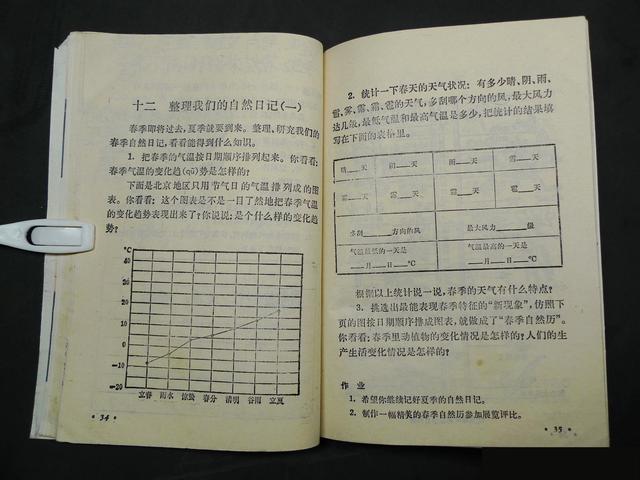 十二 整理我们的自然日记(一)
春季即将过去,夏季就要到来。整理、研究我们的
春季自然日记,看看能得到什么知识。
1. 把春季的气温按日期顺序排列起来。你看看:
春季气温的变化趋(qū)势是怎样的?
下面是北京地区只用节气日的气温排列成的图
表。你看看:这个图表是不是一目了然地把春季气温
的变化趋势表现出来了?你说说:是个什么样的变化趋
势?
℃
+40
+30
+20
+10
0
-10
-20
立春 雨水 惊蛰 春分 清明 谷雨 立夏
· 34 ·
2. 统计一下春天的天气状况:有多少晴、阴、雨、
雪、雾、雷、霜、雹的天气,多刮哪个方向的风,最大风力
达几级,最低气温和最高气温是多少,把统计的结果填
写在下面的表格里。
晴__天 阴__天 雨__天 雪__天
雾__天 雷__天 霜__天 雹__天
多刮____方向的风 最大风力____级
气温最低的一天是 气温最高的一天是
__月__日__℃ __月__日__℃
根据以上统计说一说,春季的天气有什么特点?
3. 挑选出最能表现春季特征的“新现象”,仿照下
页的图按日期顺序排成图表,就做成了“春季自然历”。
你看看:春季里动植物的变化情况是怎样的?人们的生
产生活变化情况是怎样的?
作 业
1. 希望你继续记好夏季的自然日记。
2. 制作一幅精美的春季自然历参加展览评比。
· 35 ·